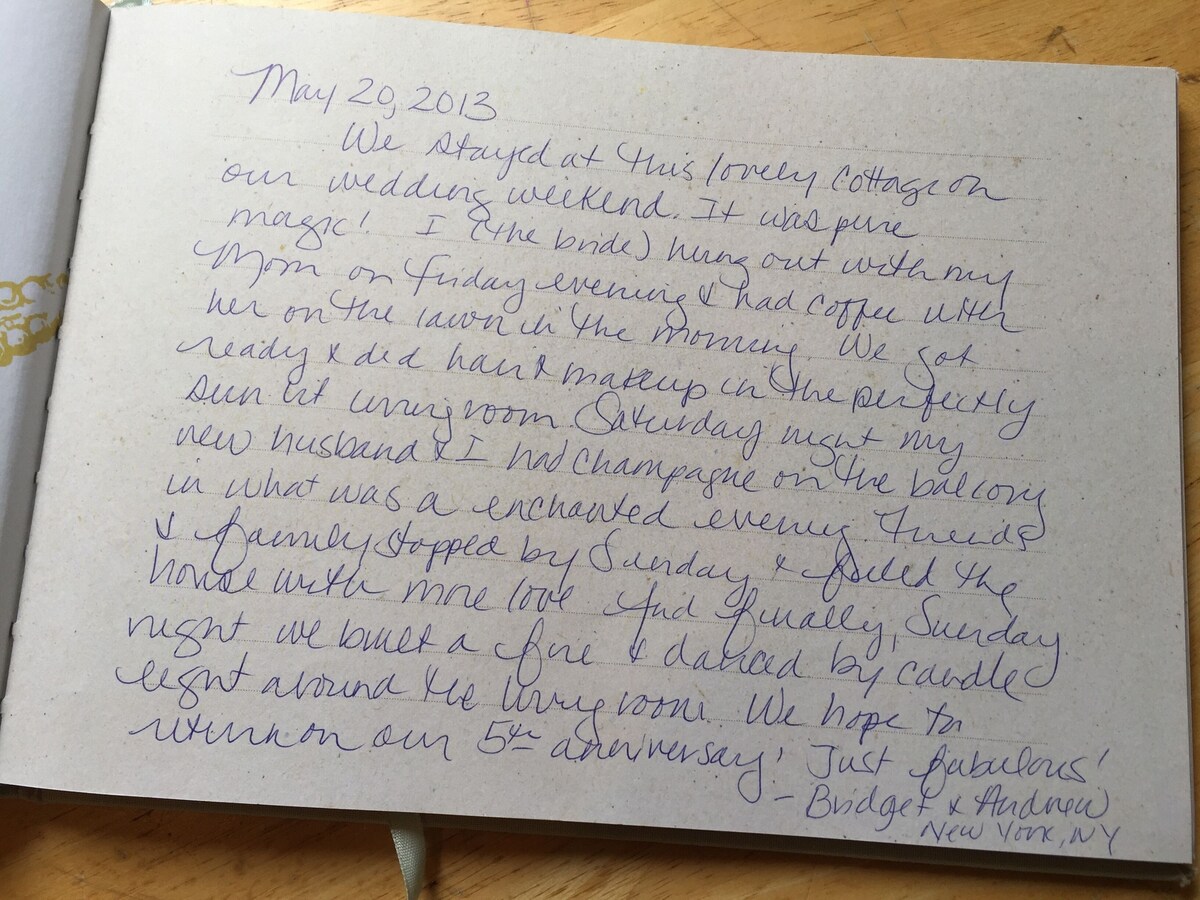 May 20, 2013
We stayed at this lovely cottage on
our wedding weekend. It was pure
magic! I (the bride) hung out with my
Mom on Friday evening & had coffee with
her on the lawn in the morning. We got
ready & did hair & makeup in the perfectly
sun lit living room. Saturday night my
new husband & I had champagne on the balcony
in what was a enchanted evening. Friends
& family stopped by Sunday & filled the
house with more love. And finally, Sunday
night we built a fire & danced by candle
light around the living room. We hope to
return on our 5th anniversary! Just fabulous!
- Bridget & Andrew
New York, NY